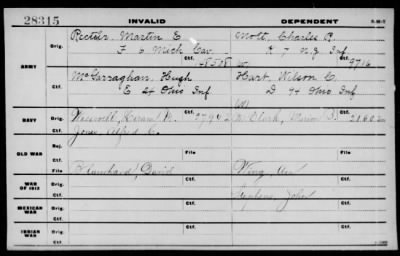 28315 INVALID DEPENDENT
Rector, Martin E Mott, Charles R.
Orig. F 6 Mich Cav. K 7 N.J. Inf
Ctf. Ctf. 9716
ARMY
McGarraghan, Hugh Hart, Wilson C.
Orig. E 24 Ohio Inf D 74 Ohio Inf
Ctf.
NAVY
Orig. Hiram Clark, Marion
Ctf. Jones, Alfred C.
OLD WAR
Orig. File
Ctf. File
WAR OF 1812
Orig. Blanchard, David Wing, Ann
Ctf. Stephens, John
MEXICAN WAR
Orig.
Ctf.
INDIAN WAR
Orig.
Ctf.